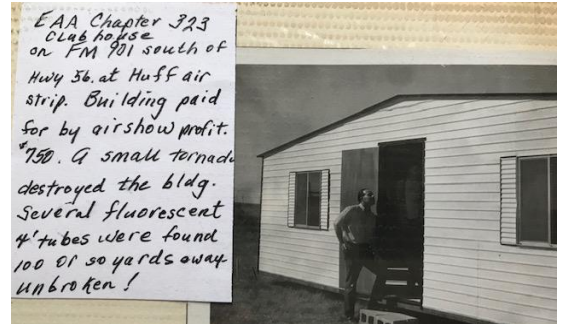 EAA Chapter 323
Clubhouse
on FM 901 south of
Hwy 56. at Huff air
strip. Building paid
for by airshow profit.
$750. A small tornado
destroyed the bldg.
Several fluorescent
4' tubes were found
100 or so yards away
unbroken!